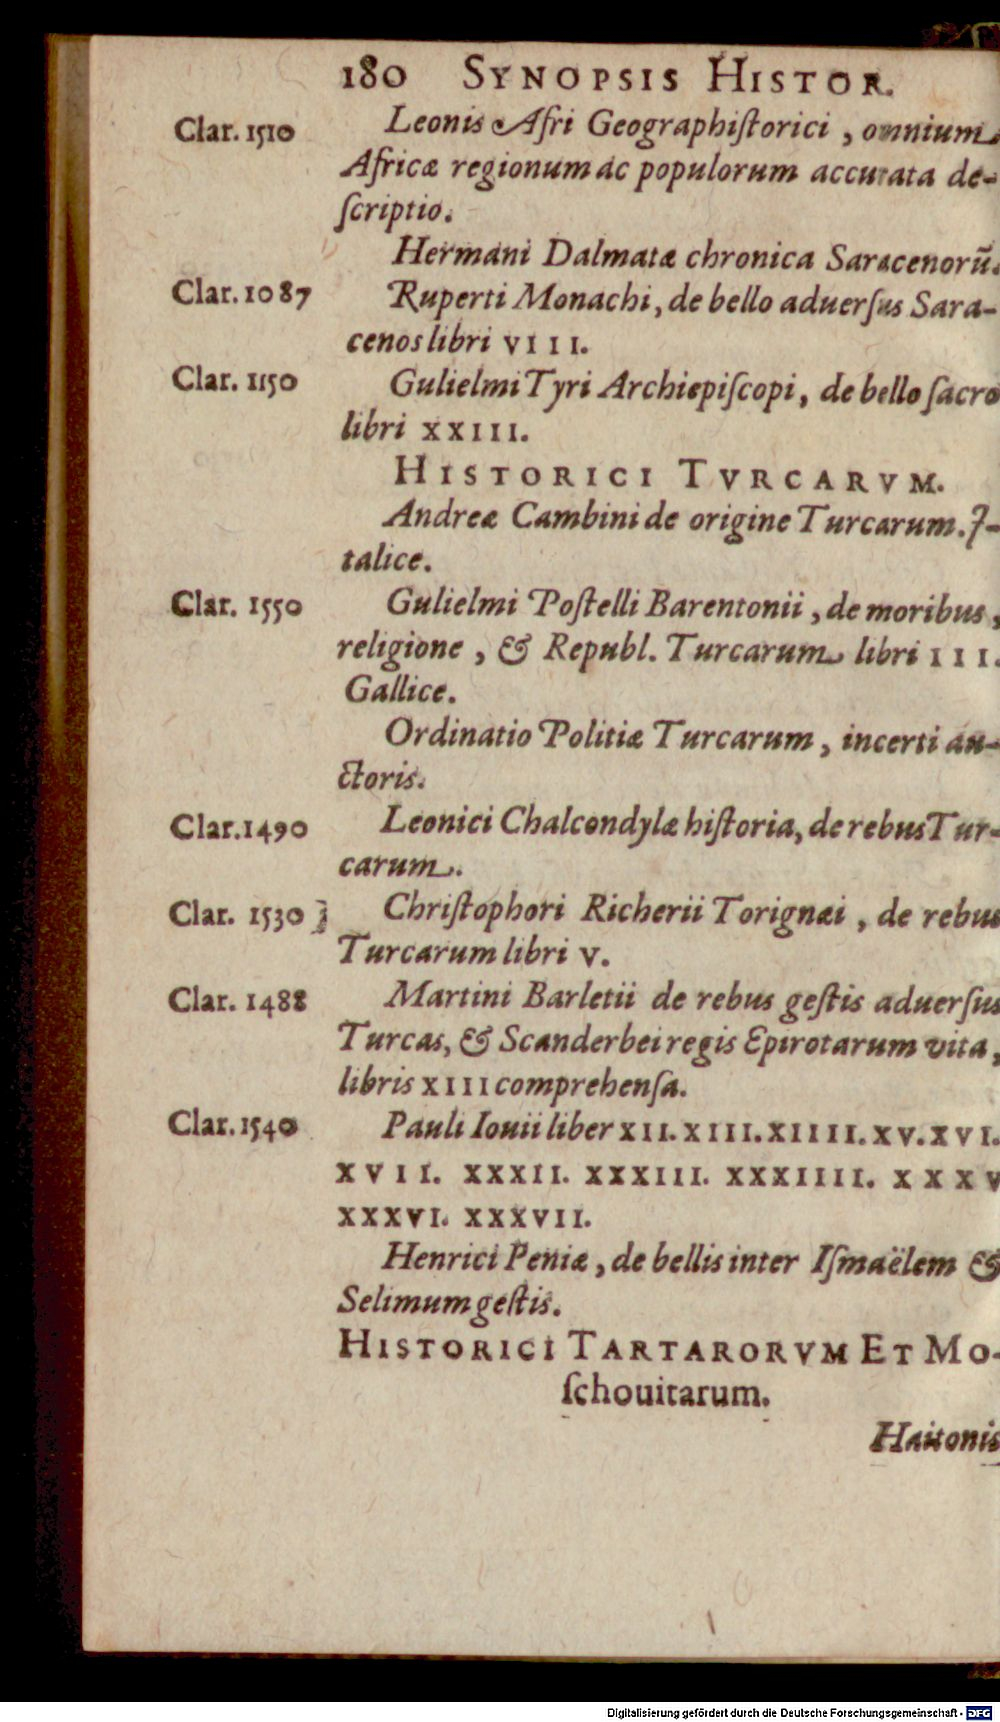 180 SYNOPSIS HISTOR.
Clar. 1510 Leonis Afri Geographiſtorici, omnium
Africæ regionum ac populorum accurata de-
ſcriptio.
Hermani Dalmatæ chronica Saracenorũ.
Clar. 1087 Ruperti Monachi, de bello aduerſus Sara-
cenos libri VIII.
Clar. 1150 Gulielmi Tyri Archiepiſcopi, de bello ſacro
libri XXIII.
HISTORICI TVRCARVM.
Andreæ Cambini de origine Turcarum. I-
talice.
Clar. 1550 Gulielmi Poſtelli Barentonii, de moribus,
religione, & Republ. Turcarum libri III.
Gallice.
Ordinatio Politiæ Turcarum, incerti au-
ctoris.
Clar. 1490 Leonici Chalcondylæ hiſtoria, de rebus Tur-
carum.
Clar. 1530 } Chriſtophori Richerii Torignæi, de rebus
Turcarum libri V.
Clar. 1488 Martini Barletii de rebus geſtis aduerſus
Turcas, & Scanderbei regis Epirotarum vita,
libris XIII comprehenſa.
Clar. 1540 Pauli Iouii liber XII. XIII. XIIII. XV. XVI.
XVII. XXXII. XXXIII. XXXIIII. XXXV
XXXVI. XXXVII.
Henrici Peniæ, de bellis inter Iſmaëlem &
Selimum geſtis.
HISTORICI TARTARORVM ET MO-
ſchouitarum.
Haitonis
Digitalisierung gefördert durch die Deutsche Forschungsgemeinschaft - DFG